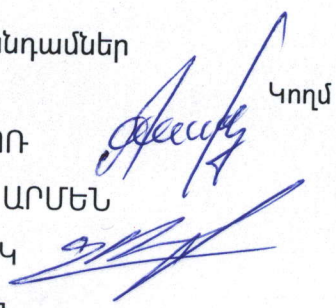 նդամներ
Կողմ
Ռ
ԱՐՄԵՆ
Կ